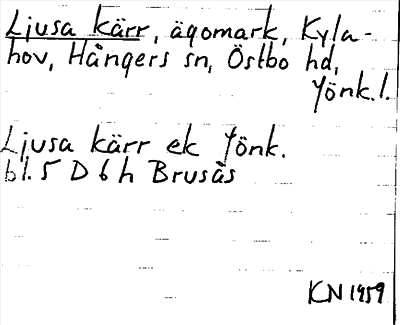 Ljusa kärr, ägomark, Kyla-
hov, Hångers sn, Östbo hd,
Jönk.l.
Ljusa kärr ek Jönk.
bl. 5 D 6 h Brusås
KN 1959